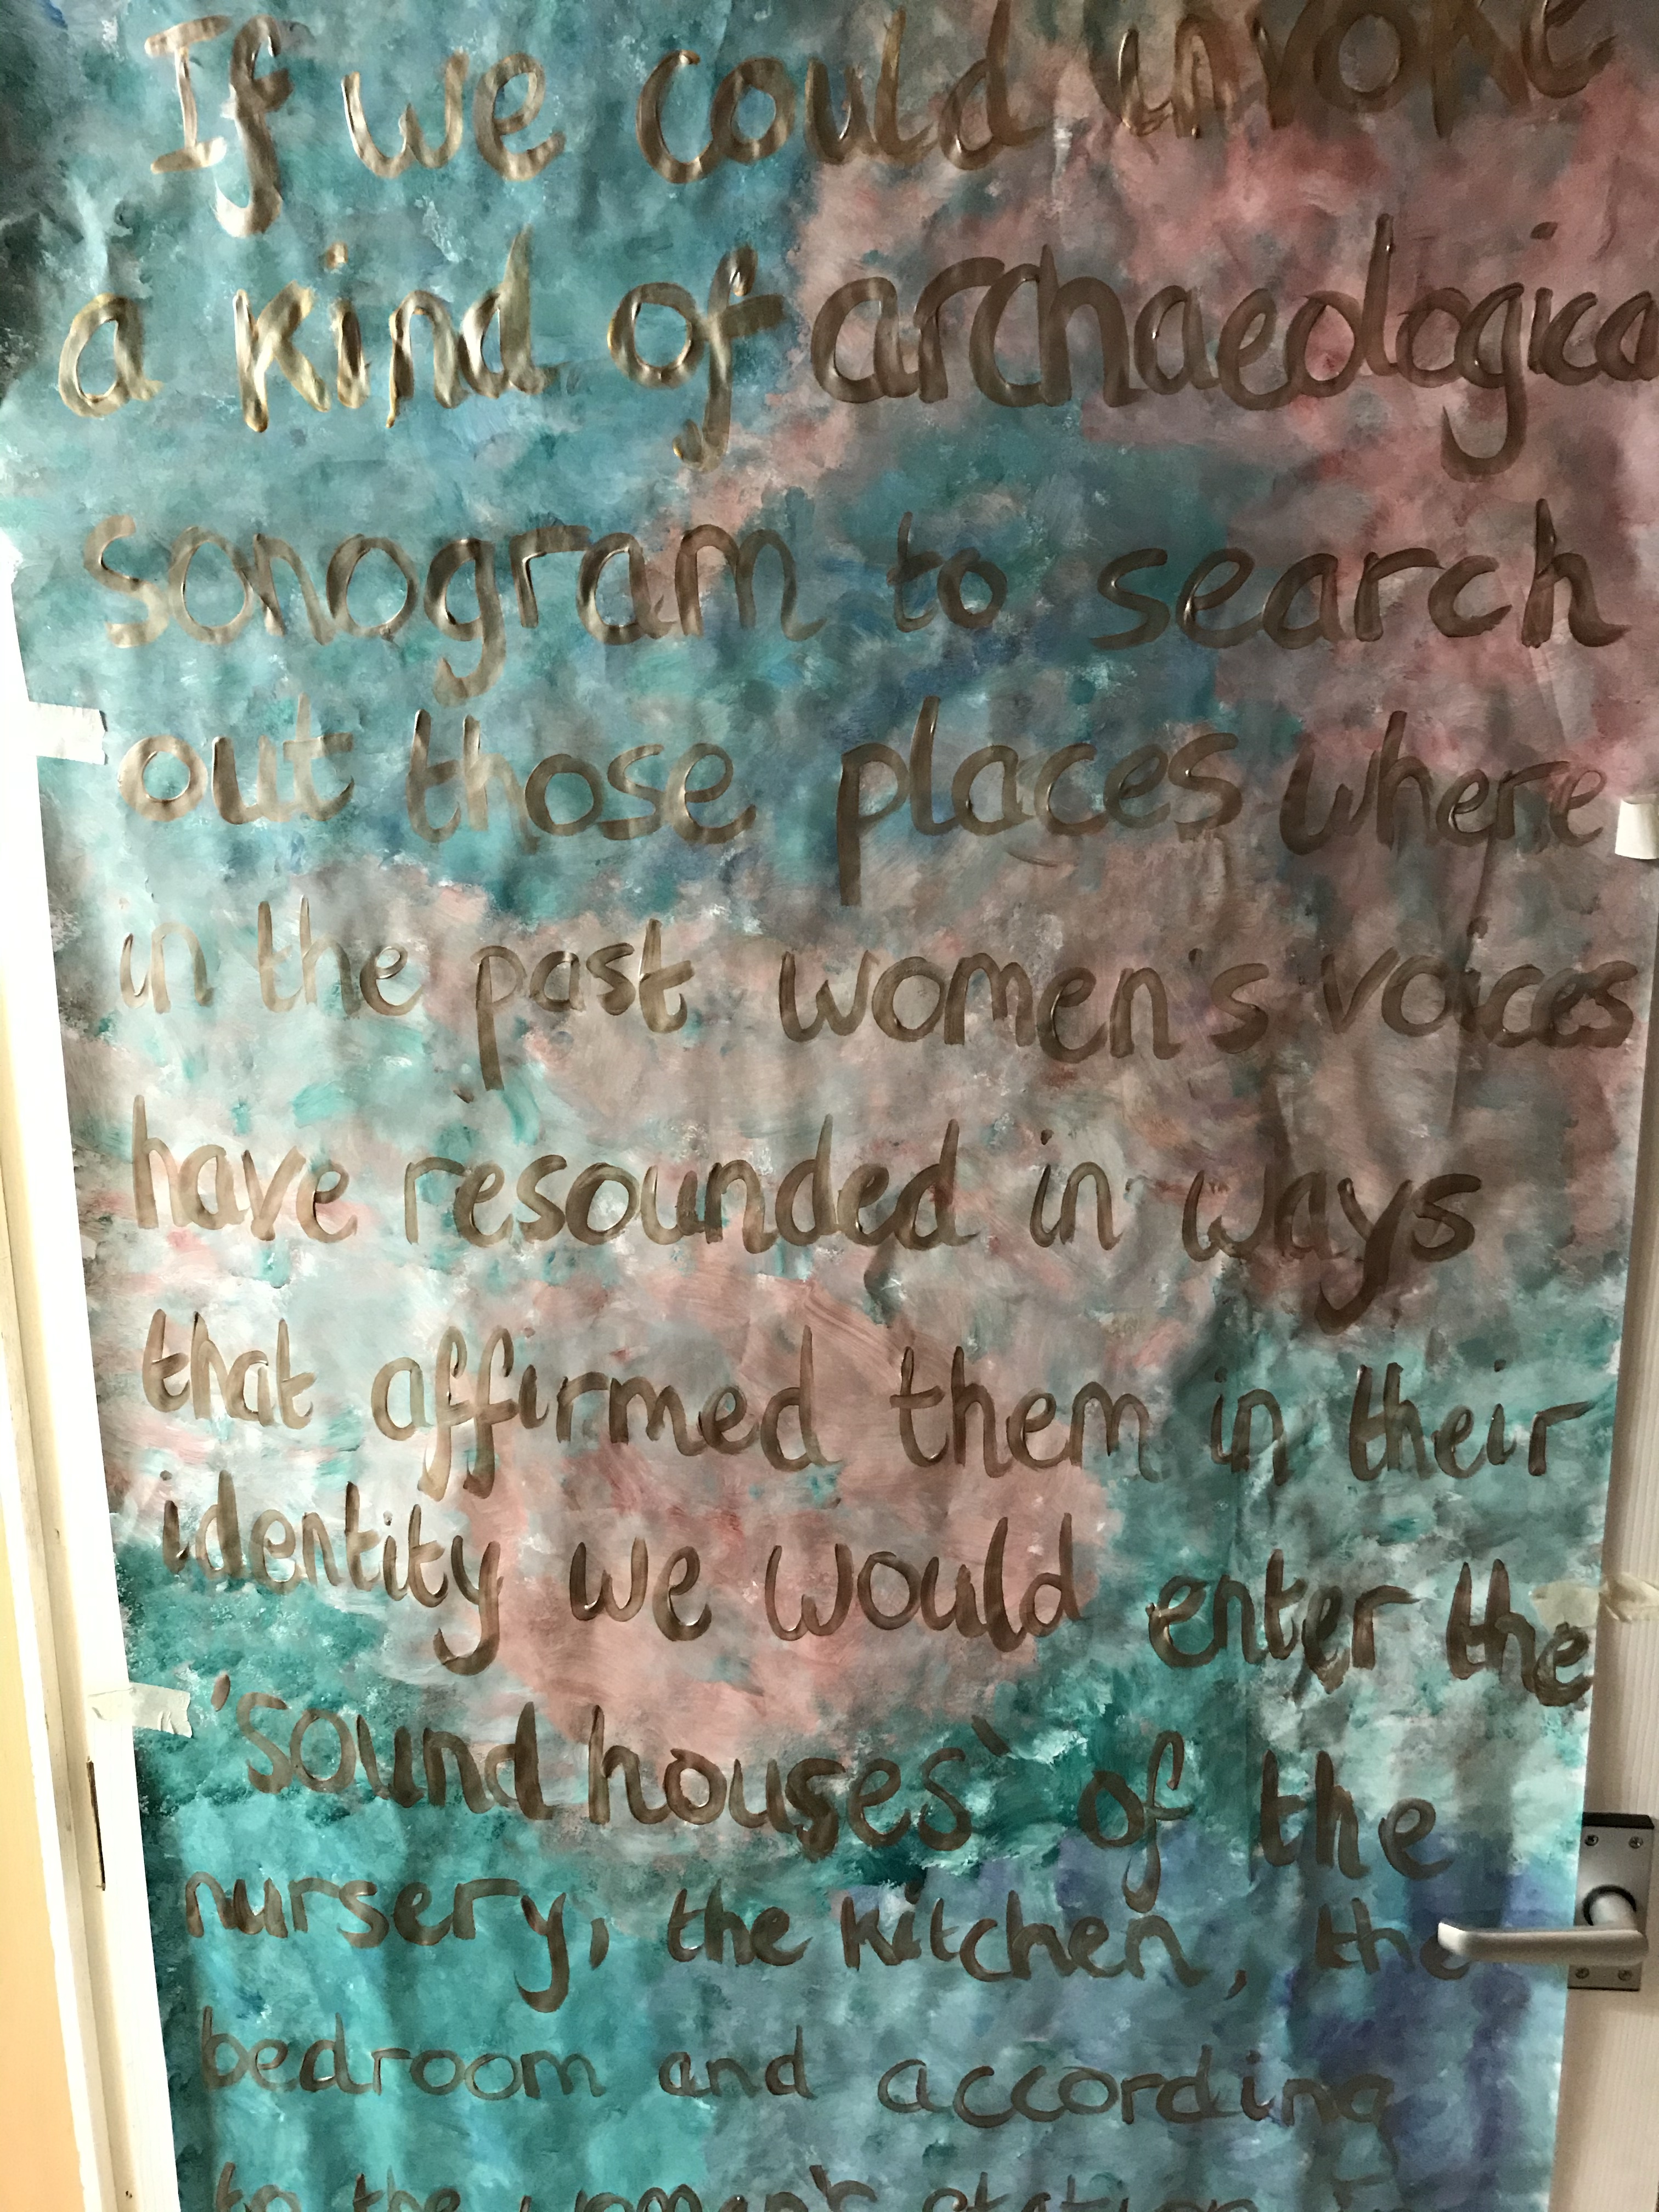 If we could invoke
a kind of archaeologica
sonogram to search
out those places where
in the past women's voices
have resounded in ways
that affirmed them in their
identity we would enter the
'sound houses' of the
nursery, the kitchen, the
bedroom and according
to the women's station